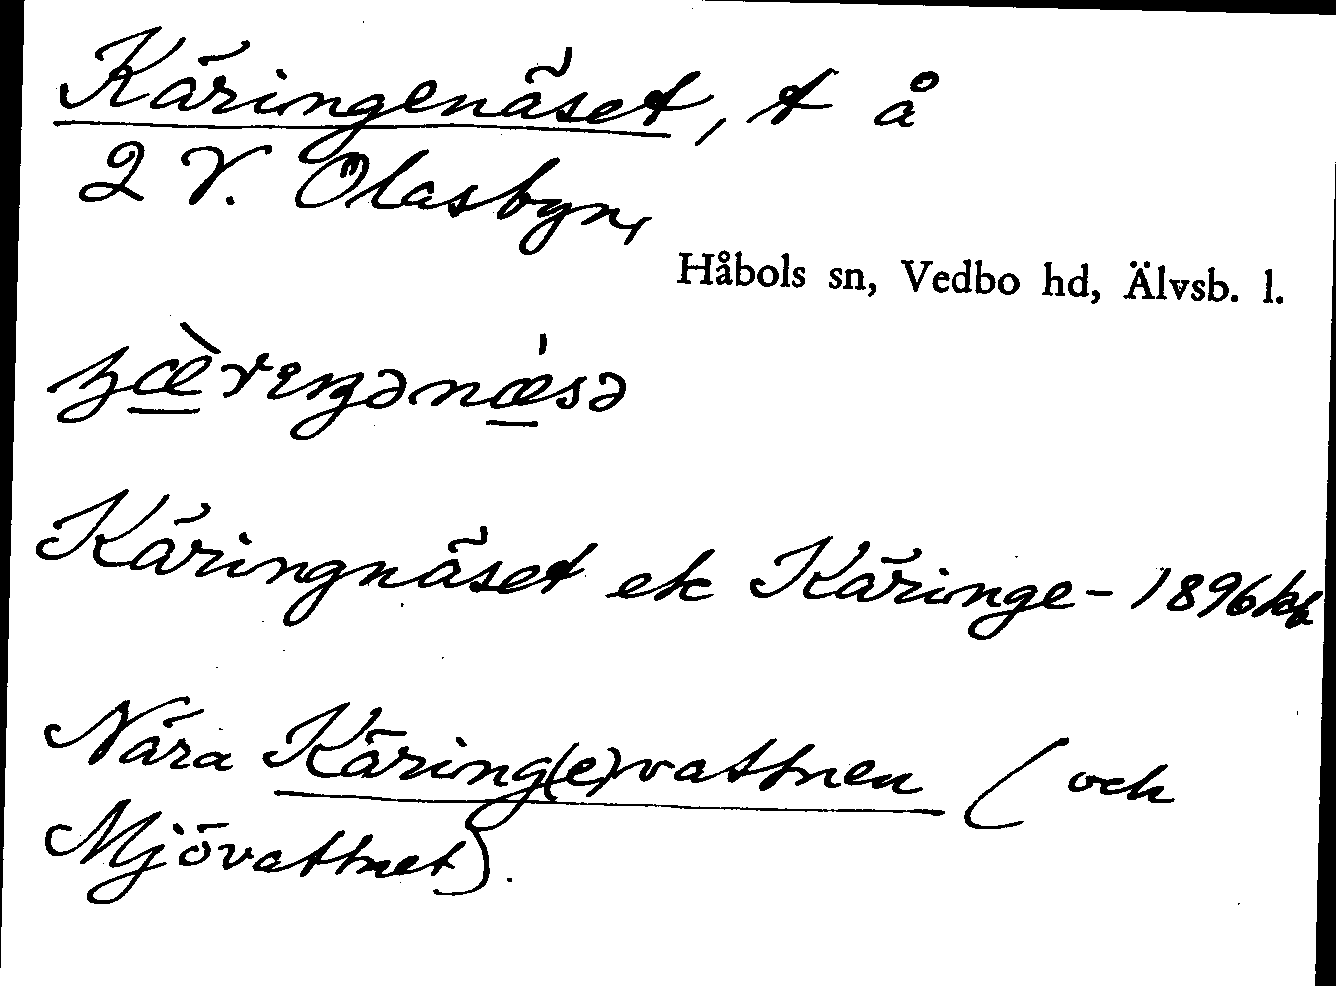 Käringenäset, t å
2 V. Olasbyn,
Håbols sn, Vedbo hd, Älvsb. l.
Käringnäset ek Käringe- 1896 kb
Nära Käring(e)vattnen (och
Mjövattnet).